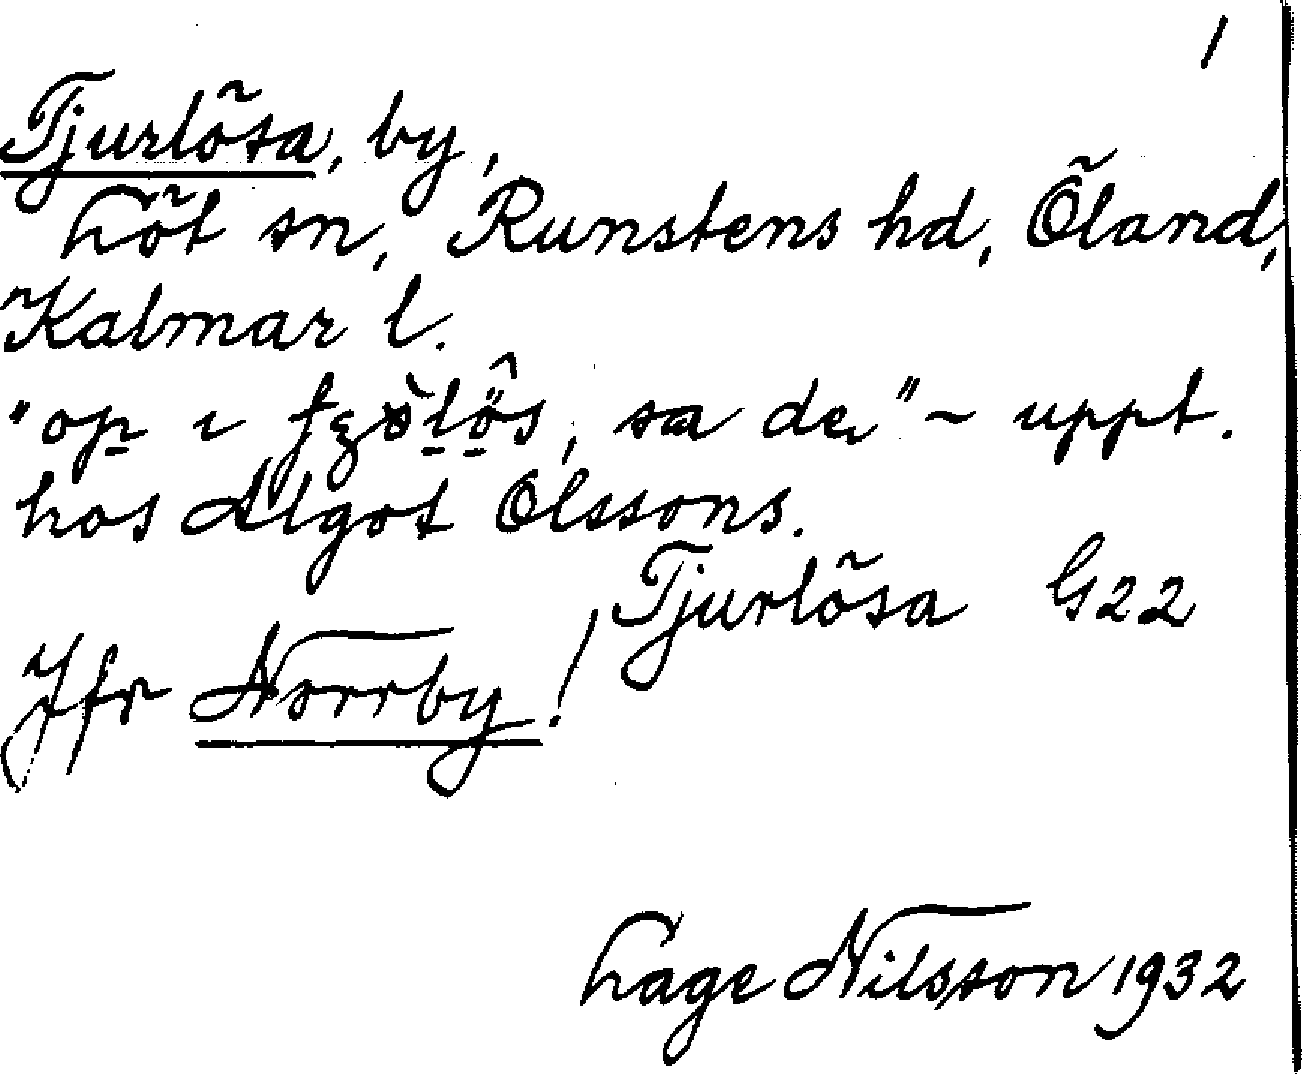 1
Tjurlösa, by,
Löt sn, Runstens hd, Öland,
Kalmar l.
"op ı uppt.
hos Algot Olssons.
Tjurlösa G22
Jfr Norrby!
Lage Nilsson 1932